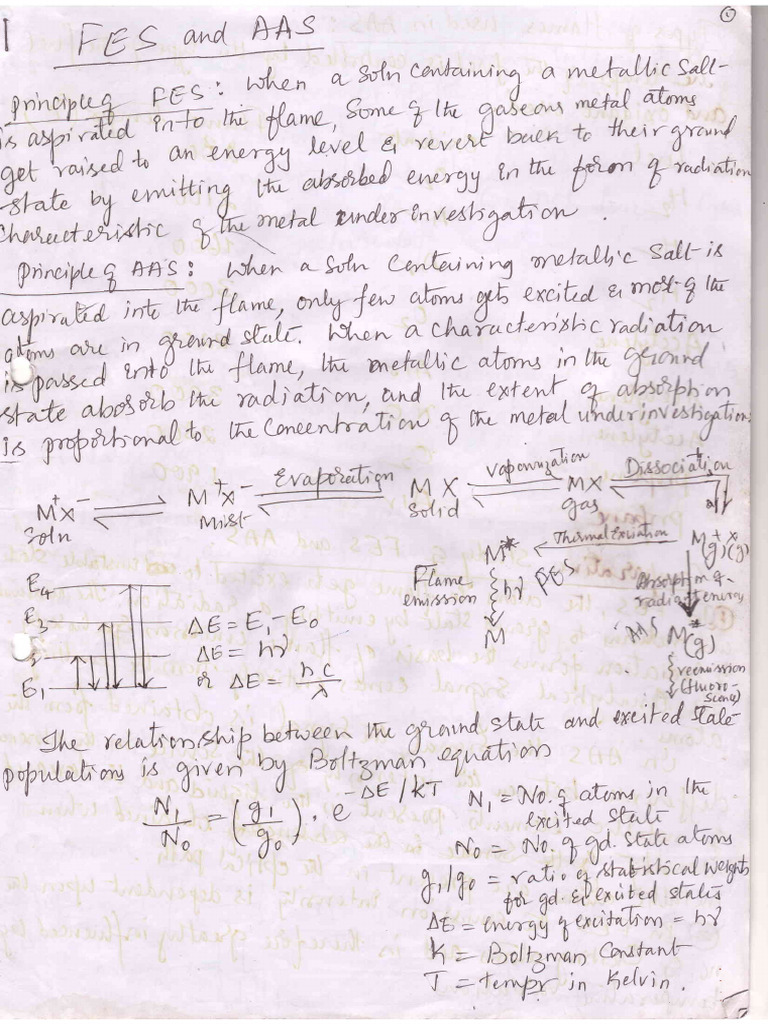 FES and AAS
Principle of FES: When a Soln containing a metallic Salt
is aspirated into the flame, Some of the gaseous metal atoms
get raised to an energy level & revert back to their ground
state by emitting the absorbed energy in the form of radiation
characteristic of the metal under investigation.
Principle of AAS: When a Soln Containing metallic Salt is
aspirated into the flame, only few atoms gets excited & most of the
atoms are in ground state. When a characteristic radiation
is passed into the flame, the metallic atoms in the ground
state abosorb the radiation, and the extent of absorption
is proportional to the Concentration of the metal under investigation
M⁺X⁻ ⇌ M⁺X⁻ Evaporation MX Vapourization MX Dissociation
Soln Mist Solid gas
M* Thermal Excitation M⁺(g) X(g)
Flame emission hν FES Absorption of radiant energy
M AAS M*(g)
reemission (fluoroscience)
E₄
E₃ ΔE = E₁ - E₀
ΔE = hν
E₁ or ΔE = hc/λ
The relationship between the ground state and excited state
populations is given by Boltzman equation
N₁/N₀ = (g₁/g₀) · e^-ΔE/KT
N₁ = No. of atoms in the
excited State
N₀ = No. of gd. State atoms
g₁/g₀ = ratio of statistical weights
for gd. & excited states
ΔE = energy of excitation = hν
K = Boltzman Constant
T = tempr in Kelvin.